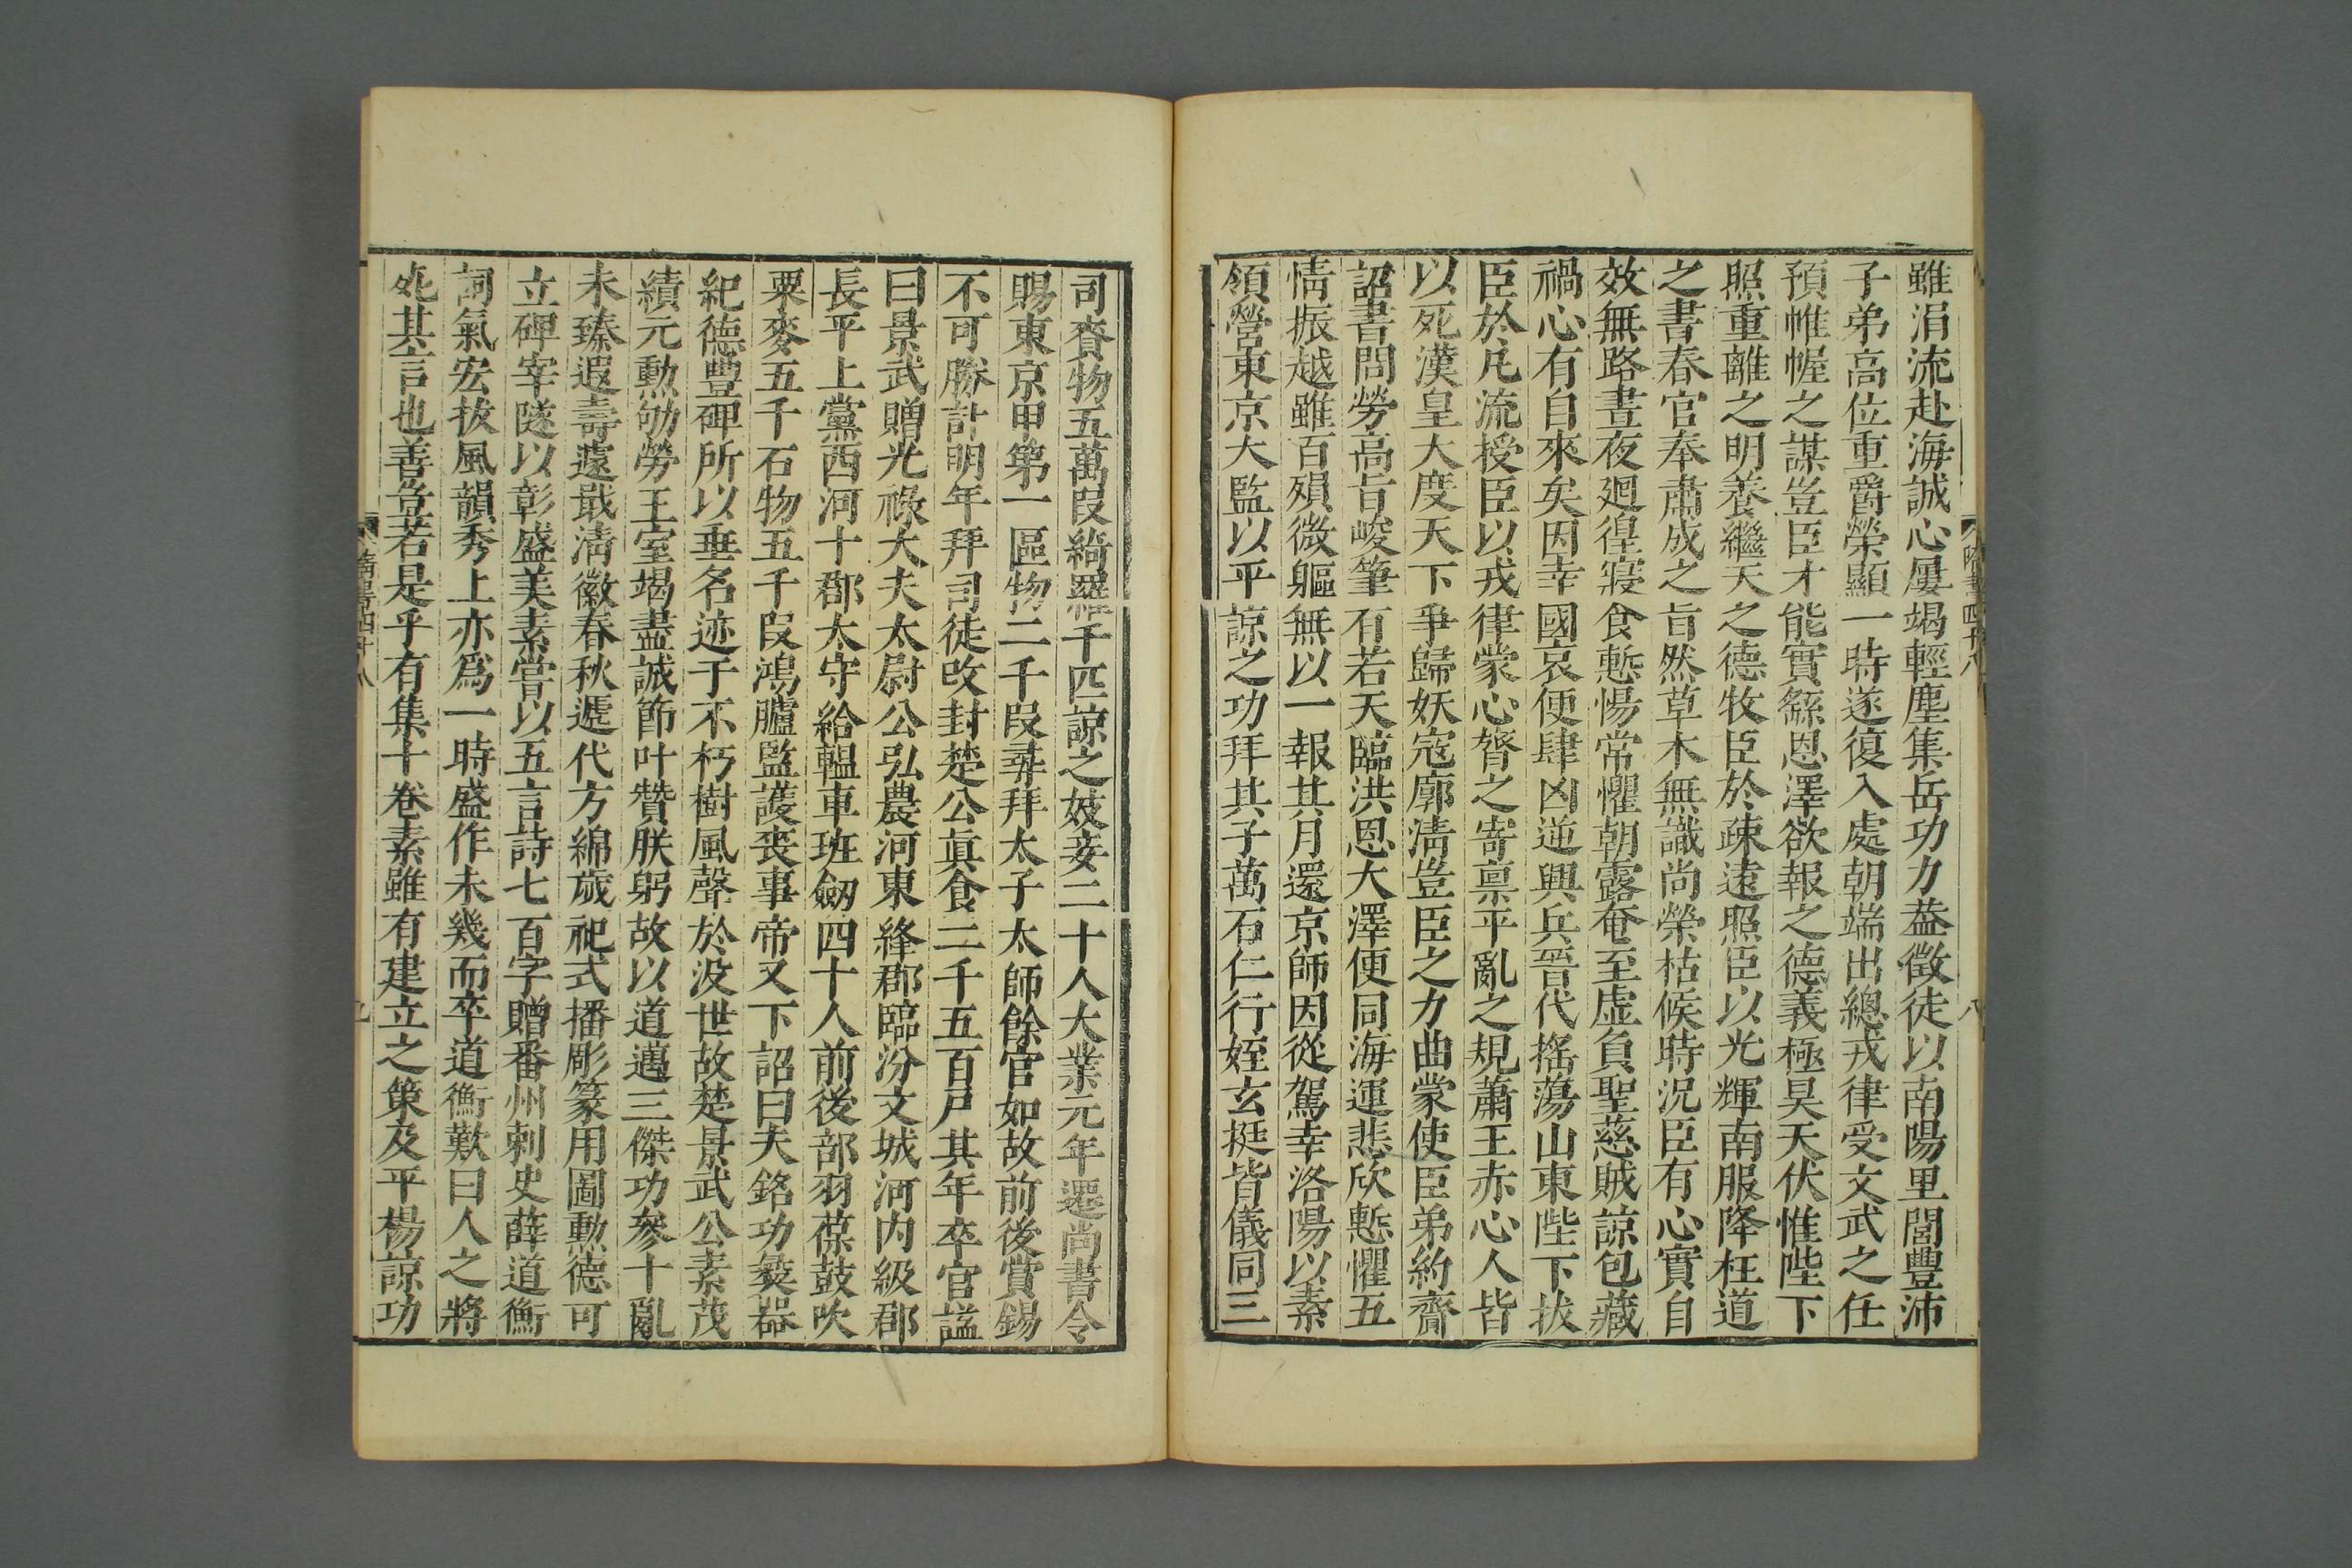 雖涓流赴海誠心屢竭輕塵集岳功力葢徵徒以南陽里閭豐沛
子弟高位重爵榮顯一時遂復入處朝端出總戎律受文武之任
預帷幄之謀豈臣才能實繇恩澤欲報之德義極昊天伏惟陛下
照重離之明養繼天之德牧臣於疎遠照臣以光輝南服降枉道
之書春官奉肅成之旨然草木無識尚榮枯候時況臣有心實自
效無路晝夜廻徨寢食慙惕常懼朝露奄至虚負聖慈賊諒包藏
禍心有自來矣因幸國哀便肆凶逆興兵晉代搖蕩山東陛下拔
臣於凡流授臣以戎律蒙心膂之寄禀平亂之規蕭王赤心人皆
以死漢皇大度天下爭歸妖寇廓清豈臣之力曲蒙使臣弟約齎
詔書問勞高旨峻筆有若天臨洪恩大澤便同海運悲欣慙懼五
情振越雖百殞微軀無以一報其月還京師因從駕幸洛陽以素
領營東京大監以平諒之功拜其子萬石仁行姪玄挺皆儀同三
隋書四十八
八
司賚物五萬叚綺羅千匹諒之妓妾二十人大業元年遷尚書令
賜東京甲第一區物二千叚尋拜太子太師餘官如故前後賞錫
不可勝計明年拜司徒改封楚公眞食二千五百戸其年卒官諡
曰景武贈光祿大夫太尉公弘農河東絳郡臨汾文城河内級郡
長平上黨西河十郡太守給轀車班劒四十人前後部羽葆鼓吹
粟麥五千石物五千叚鴻臚監護喪事帝又下詔曰夫銘功彝器
紀德豐碑所以垂名迹于不朽樹風聲於没世故楚景武公素茂
績元勳劬勞王室竭盡誠節叶贊朕躬故以道邁三傑功參十亂
未臻遐壽遽戢清徽春秋遞代方綿歲祀式播彫篆用圖勳德可
立碑宰隧以彰盛美素嘗以五言詩七百字贈番州刺史薛道衡
詞氣宏拔風韻秀上亦爲一時盛作未幾而卒道衡歎曰人之將
死其言也善豈若是乎有集十卷素雖有建立之策及平楊諒功
隋書四十八
九